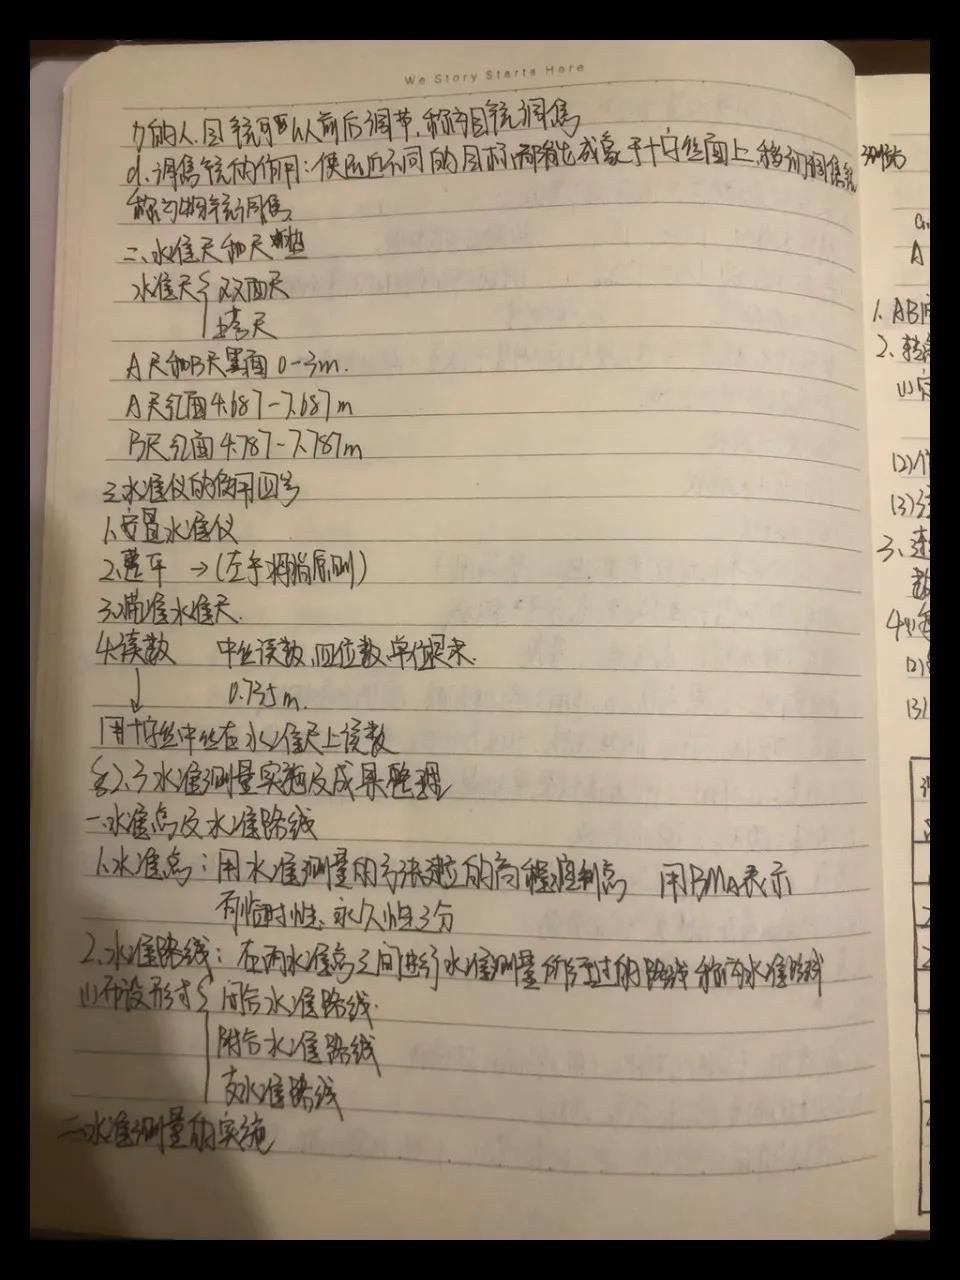 We Story Starts Here
力的人,目镜可以前后调节,称为目镜调焦
d.调焦镜的作用:使远近不同的目标都能成象于十字丝面上,移动调焦镜
称为物镜调焦
二、水准尺和尺垫
水准尺{双面尺
塔尺
A尺和B尺黑面0-3m.
A尺红面4.687-7.687m
B尺红面4.787-7.787m
三、水准仪的使用
1.安置水准仪
2.整平 →(左手拇指原则)
3.瞄准水准尺.
4.读数 中丝读数,四位数,单位是米.
↓ 0.735m.
用十字丝中丝在水准尺上读数
§2.3水准测量实施及成果整理
一.水准点及水准路线
1.水准点:用水准测量的方法建立的高程控制点 用BMA表示
有临时性、永久性之分
2.水准路线:在两水准点之间进行水准测量所经过的路线称为水准路线
(1)布设形式{闭合水准路线.
附合水准路线
支水准路线
二.水准测量的实施
A
1.AB
2.转
(1)
(2)
(3)
3.连
数
4.(1)
(2)
(3)